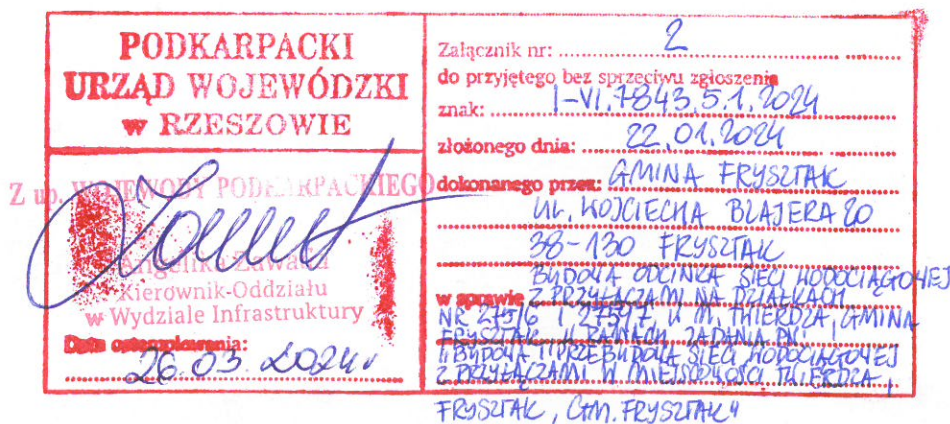 PODKARPACKI
URZĄD WOJEWÓDZKI
w RZESZOWIE
Z up. WOJEWODY PODKARPACKIEGO
Kierownik Oddziału
w Wydziale Infrastruktury
Data ostemplowania:
26.03.2024r
Załącznik nr: 2
do przyjętego bez sprzeciwu zgłoszenia
znak: I-VI.7843.5.1.2024
złożonego dnia: 22.01.2024
dokonanego przez: GMINA FRYSZTAK
UL. WOJCIECHA BLAJERA 20
38-130 FRYSZTAK
BUDOWA ODCINKA SIECI WODOCIĄGOWEJ
w sprawie Z PRZYŁĄCZAMI NA DZIAŁKACH
NR 275/6 I 2759/7 W M. TWIERDZA, GMINA
FRYSZTAK W RAMACH ZADANIA PN.:
"BUDOWA I PRZEBUDOWA SIECI WODOCIĄGOWEJ
Z PRZYŁĄCZAMI W MIEJSCOWOŚCI TWIERDZA,
FRYSZTAK, GM. FRYSZTAK"